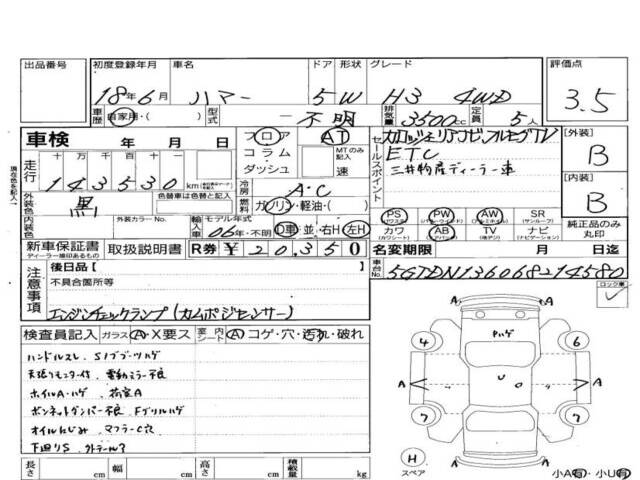 出品番号 初度登録年月 車名 ドア 形状 グレード 評価点
18年6月 ハマー 5 W H3 4WD 3.5
車歴 自家用・( ) 型式 不明 排気量 3500cc 定員 5人
車検 年 月 日 フロア AT
コラム MTのみ記入
ダッシュ 速
走行 十万 万 千 百 十 一
143530 km
冷房 A・C
外装色 黒 色替車は色替と記入
燃料 ガソリン・軽油・( )
内装色 外装カラーNo. 輸入車 モデル年式 06年・不明 D車・並・右H・左H
セールスポイント カロッツェリアナビ、フルセグTV
ETC
三井物産ディーラー車
[外装] B
[内装] B
PS PW AW SR
(パワステ) (パワーウインド) (アルミホイール) (サンルーフ)
カワ AB TV ナビ
(カワシート) (エアバッグ) (地デジ) (ナビゲーション)
純正品のみ丸印
新車保証書 取扱説明書 R券 ¥20,350
ディーラー様印あるもの
名変期限 月 日迄
車台No. 5GTDN136068214580
ロック車
注意事項 後日品[ ]
不具合箇所等
エンジンチェックランプ(カムポジセンサー)
検査員記入 ガラス A・X要ス 室内シート A コゲ・穴・汚れ・破れ
ハンドルスレ、Sノブブーツハゲ
天張りモニター付、電動ミラー不良
ホイルA・ハゲ、荷室A
ボンネットダンパー不良、Fグリルハゲ
オイルにじみ、マフラーC穴
下廻りS、
Pハゲ
4 6
A A A
U
7 7
H
スペア
小A有・小U有
長さ cm 幅 cm 高さ cm 積載量 kg